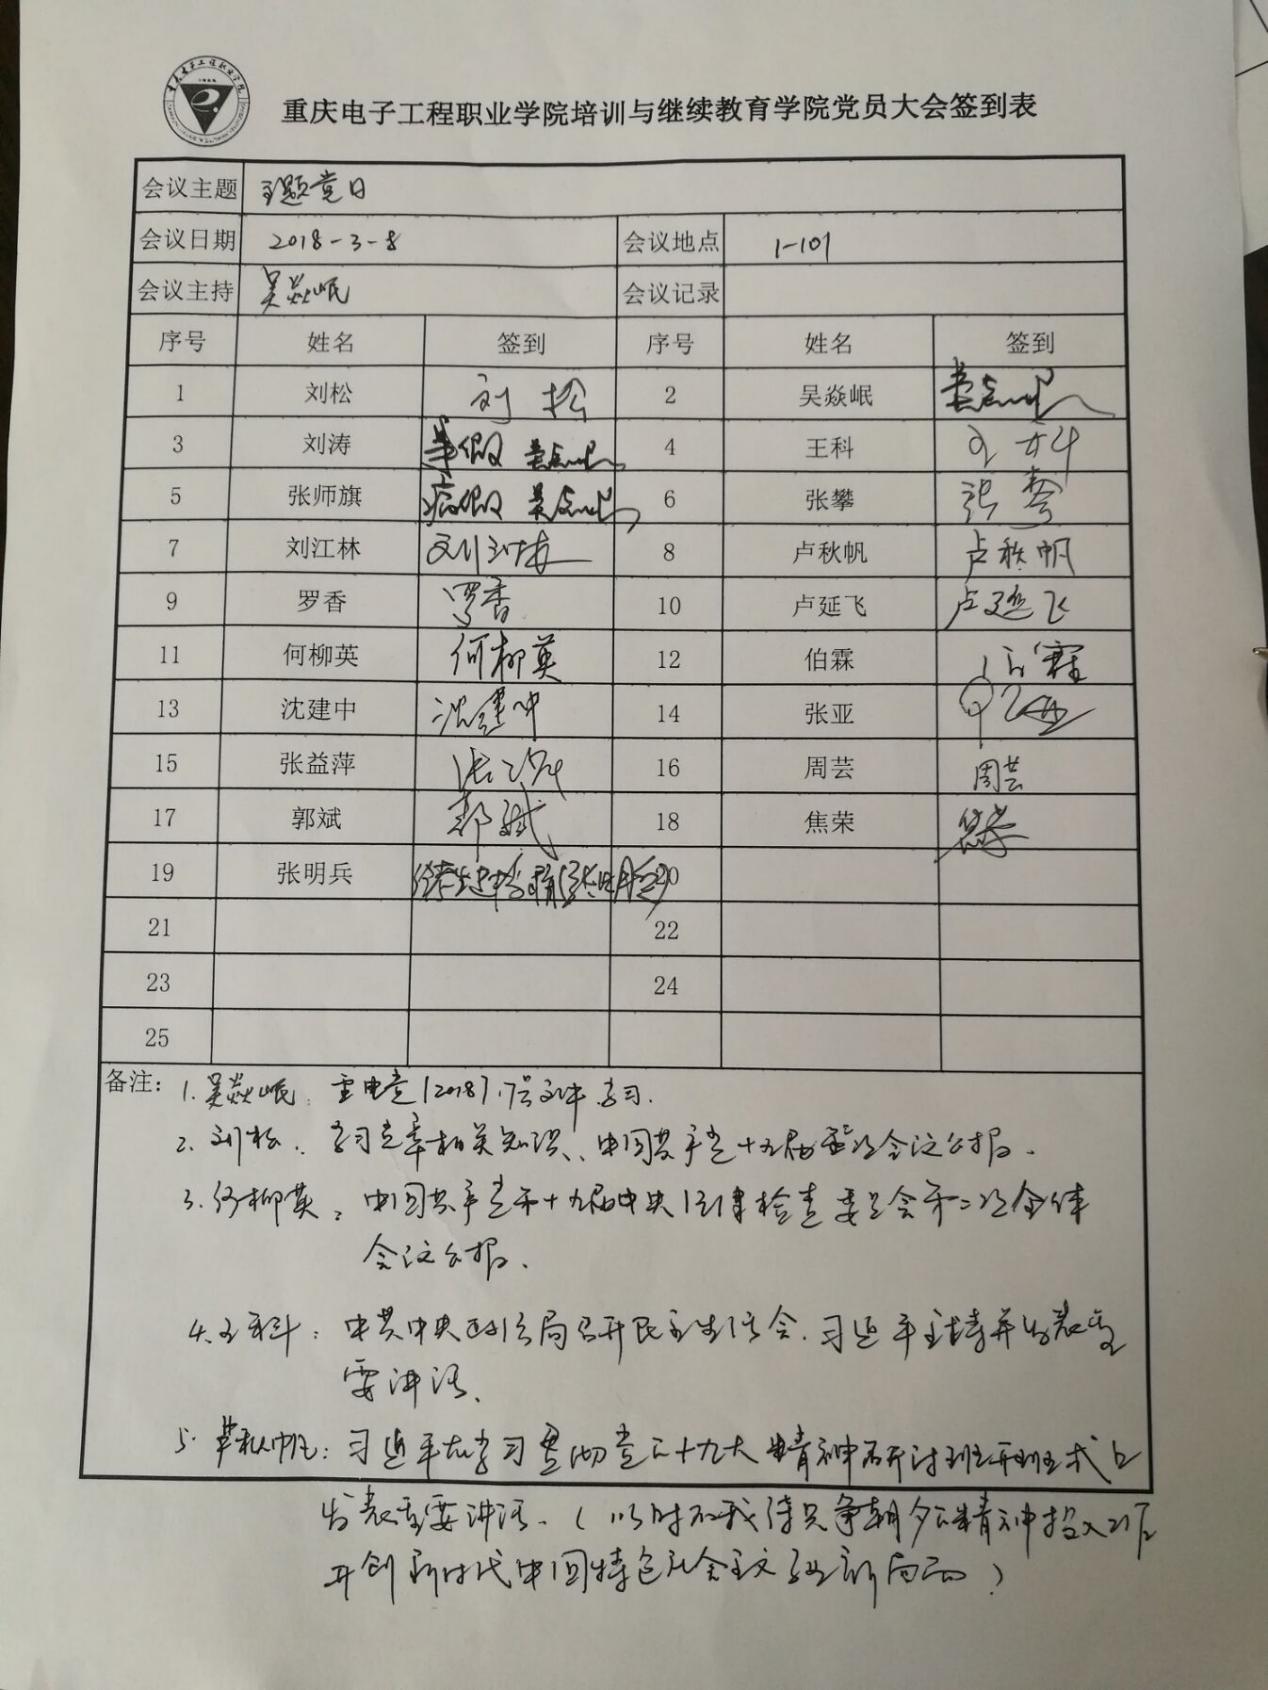 重庆电子工程职业学院培训与继续教育学院党员大会签到表
会议主题 主题党日
会议日期 2018-3-8 会议地点 1-101
会议主持 吴焱岷 会议记录
序号 姓名 签到 序号 姓名 签到
1 刘松 刘松 2 吴焱岷 吴焱岷
3 刘涛 事假 吴焱岷 4 王科 王科
5 张师旗 病假 吴焱岷 6 张攀 张攀
7 刘江林 刘江林 8 卢秋帆 卢秋帆
9 罗香 罗香 10 卢延飞 卢延飞
11 何柳英 何柳英 12 伯霖 伯霖
13 沈建中 沈建中 14 张亚 张亚
15 张益萍 16 周芸 周芸
17 郭斌 郭斌 18 焦荣 焦荣
19 张明兵 20
21 22
23 24
25
备注: 1.吴焱岷: 重电党[2018].7号文件学习.
2.刘松: 学习党章相关知识、中国共产党十九届会议公报.
3.何柳英: 中国共产党第十九届中央纪律检查委员会第二次全体
会议公报.
4.王科: 中共中央政治局召开民主生活会.习近平主持并发表重
要讲话.
5.卢秋帆: 习近平在学习贯彻党的十九大精神研讨班开班式上
发表重要讲话.(以时不我待只争朝夕的精神投入工作
开创新时代中国特色社会主义事业新局面)